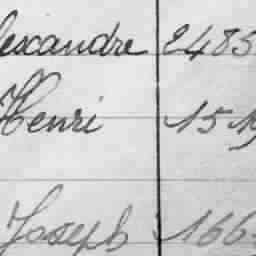 lexandre 2485
Henri 151
Joseph 166